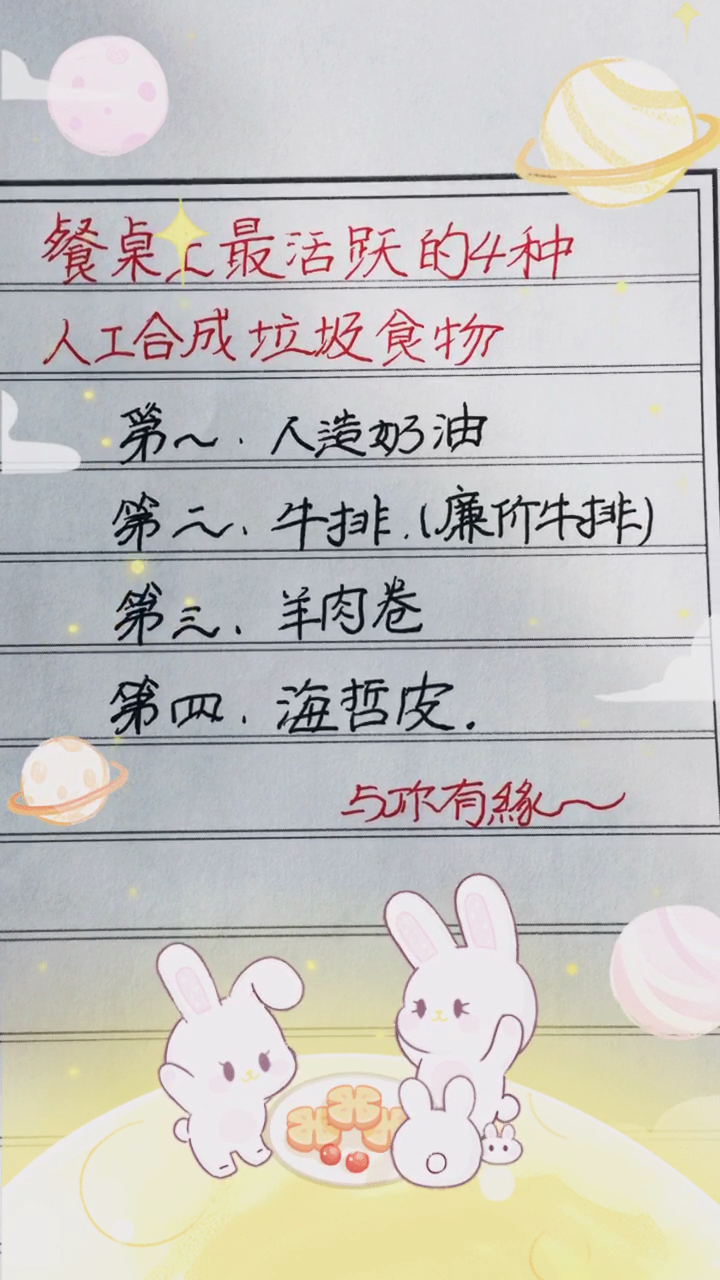 餐桌上最活跃的4种
人工合成垃圾食物
第一.人造奶油
第二.牛排.(廉价牛排)
第三.羊肉卷
第四.海哲皮.
与你有緣